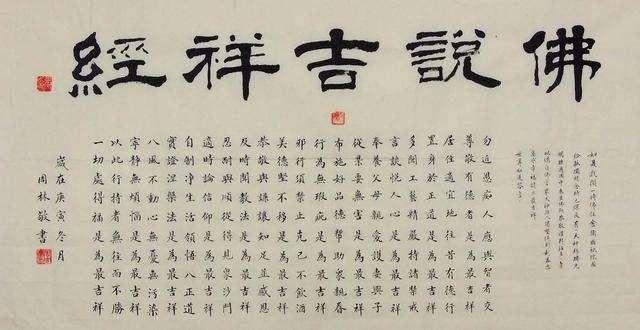 佛說吉祥經
如是我聞一時佛住舍衛國
勿近愚痴人應與智者交
尊敬有德者是為最吉祥
居住適宜地往昔有德行
置身於正道是為最吉祥
多聞工藝精嚴持諸禁戒
言談悅人心是為最吉祥
奉養父母親愛護妻與子
從業要無害是為最吉祥
布施好品德幫助眾親眷
行為無瑕疵是為最吉祥
邪行須禁止克己不飲酒
美德堅不移是為最吉祥
恭敬與謙讓知足並感恩
及時聞教法是為最吉祥
忍耐與順從得見眾沙門
適時論信仰是為最吉祥
自制淨生活領悟八正道
實證涅槃法是為最吉祥
八風不動心無憂無污染
寧靜無煩惱是為最吉祥
以此行持者無往而不勝
一切處得福是為最吉祥
歲在庚寅冬月
周林敬書